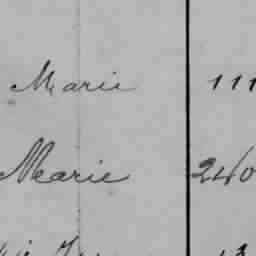 Marie 111
Marie 240